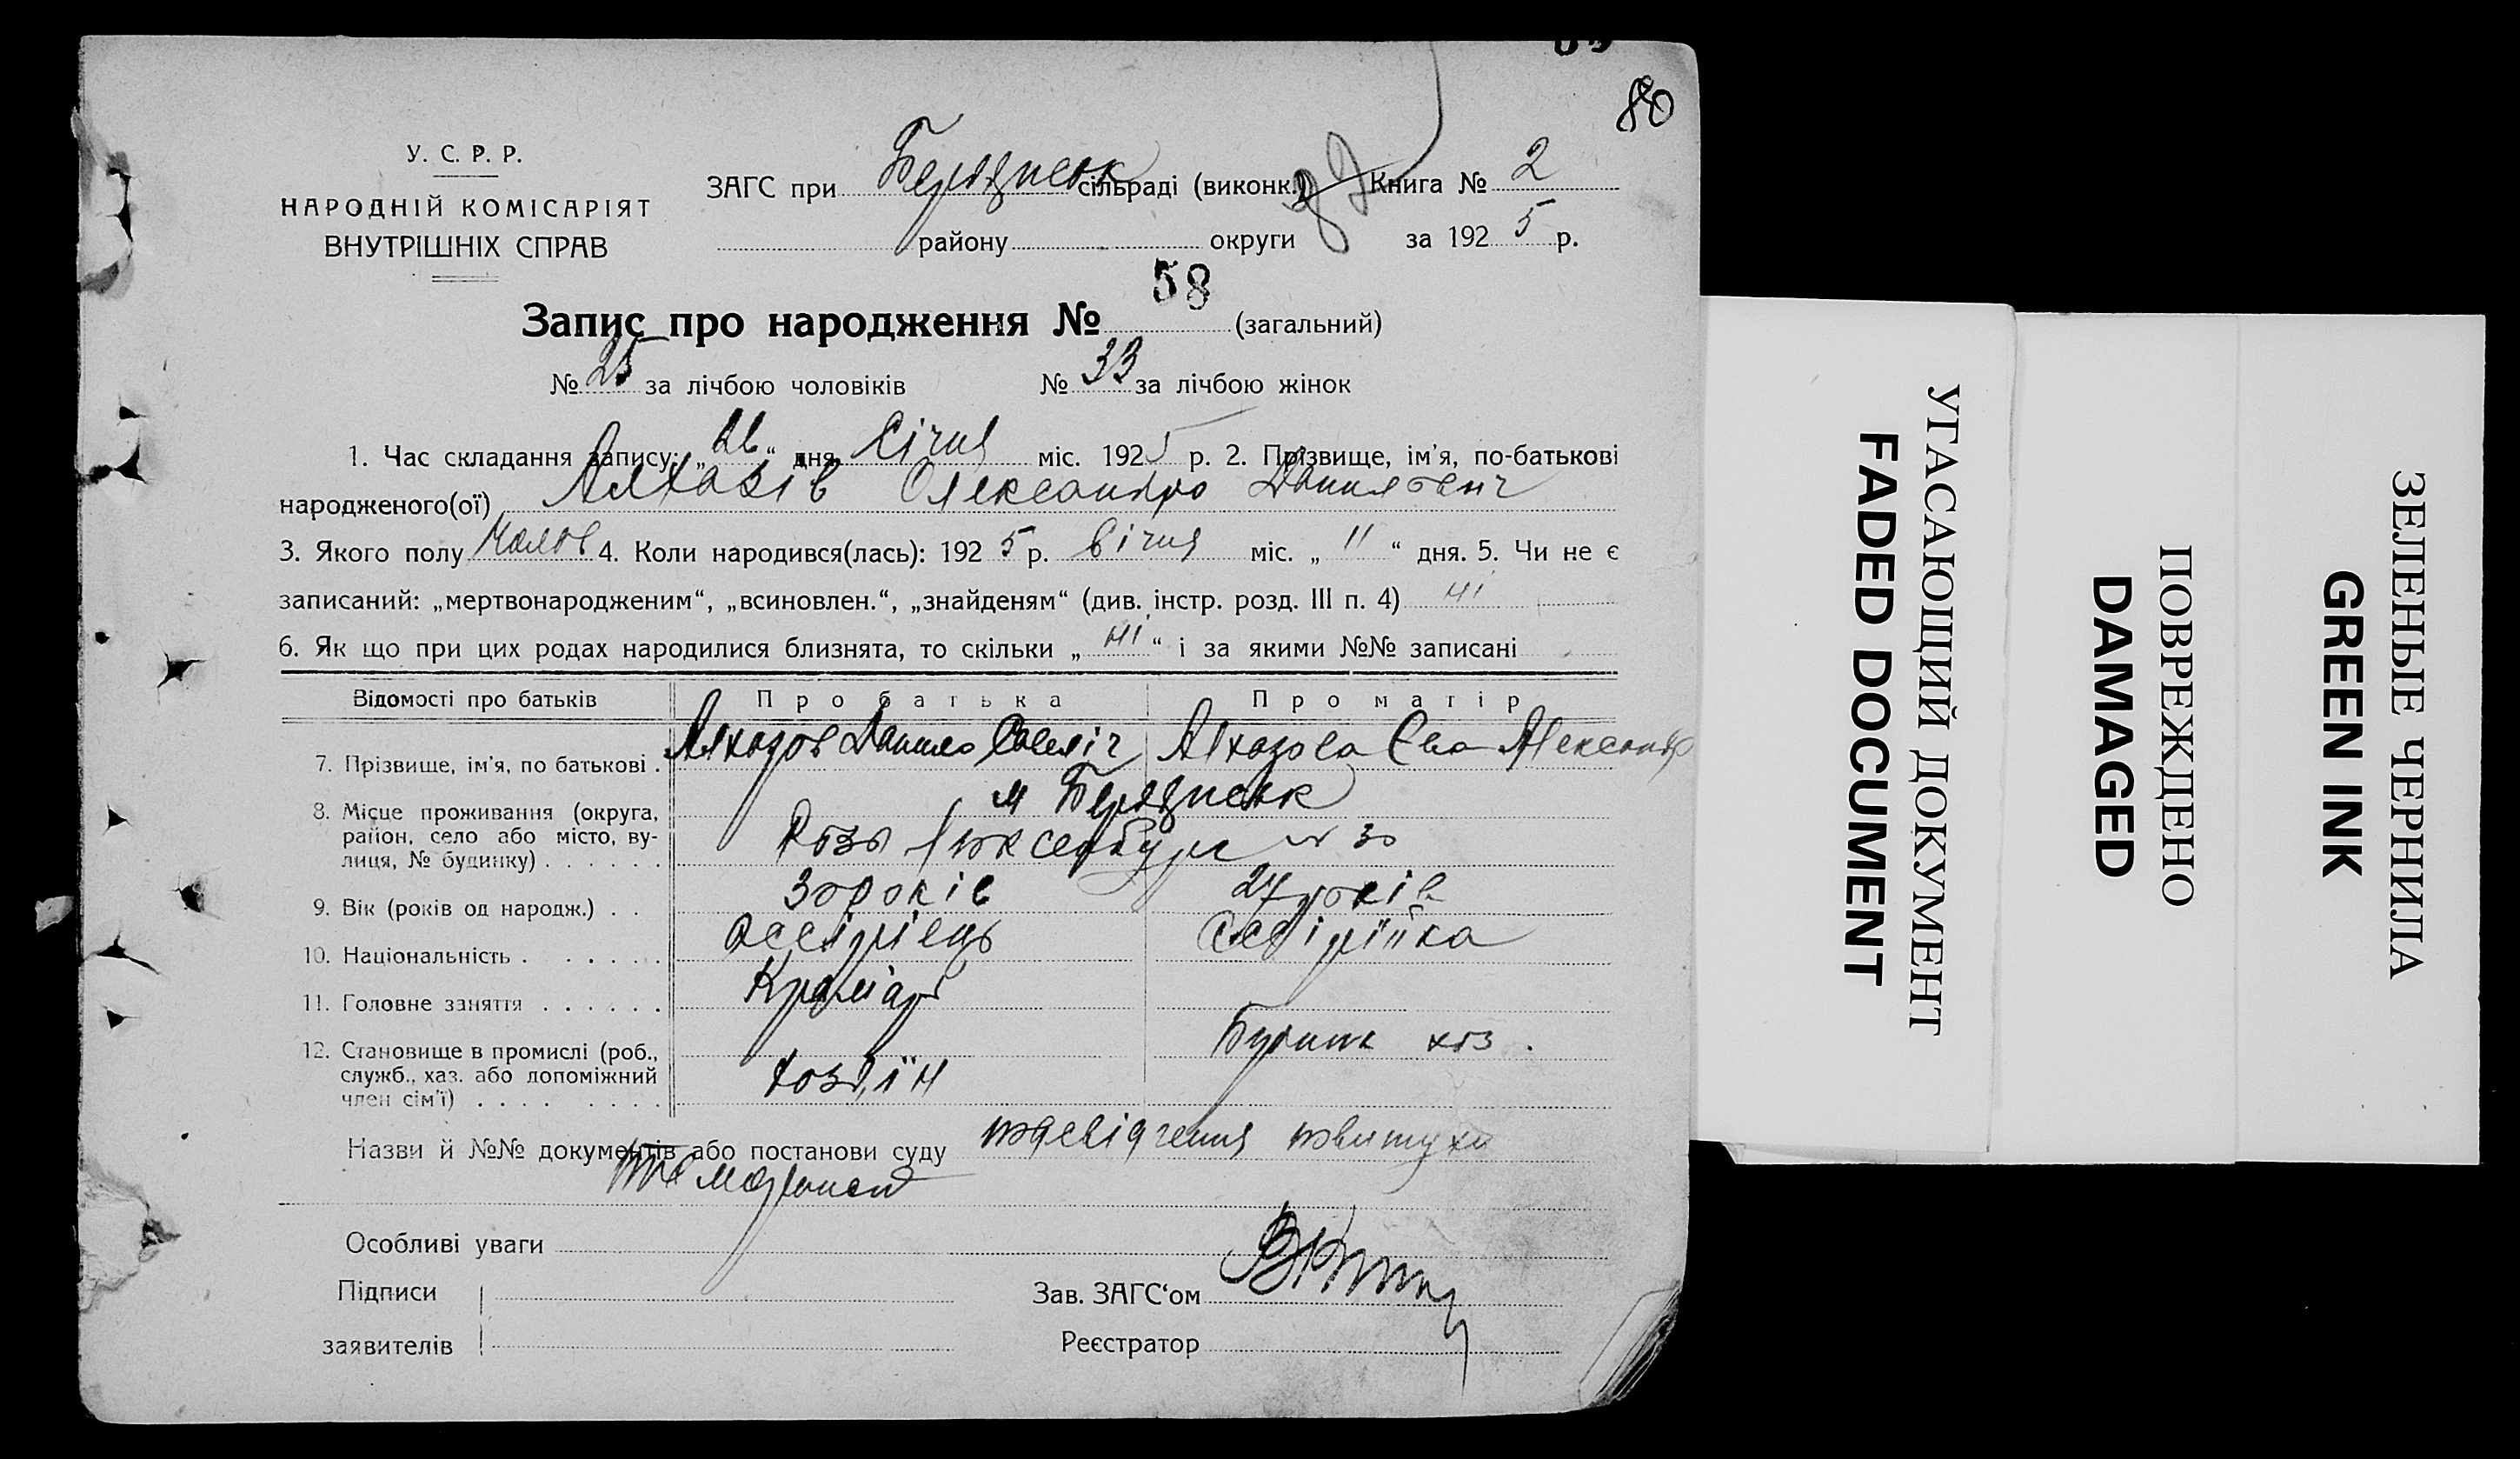 80
У. С. Р. Р.
НАРОДНІЙ КОМІСАРІЯТ
ВНУТРІШНІХ СПРАВ
ЗАГС при Бердянськ сільраді (виконк.) Книга № 2
району округи за 1925 р.
Запис про народження № 58 (загальний)
№ 25 за лічбою чоловіків № 33 за лічбою жінок
1. Час складання запису: „ “ дня Січня міс. 1925 р. 2. Прізвище, ім'я, по-батькові
народженого(ої) Алхазів Олександро Данилович
3. Якого полу Чолов 4. Коли народився(лась): 1925 р. Січня міс. „ 11 “ дня. 5. Чи не є
записаний: „мертвонародженим“, „всиновлен.“, „знайденям“ (див. інстр. розд. III п. 4) ні
6. Як що при цих родах народилися близнята, то скільки „ ні “ і за якими №№ записані
Відомості про батьків Про батька Про матір
7. Прізвище, ім'я, по батькові . Алхазов Данило Савеліч Алхазова Єва Александр
8. Місце проживання (округа, район, село або місто, вулиця, № будинку) . . . . . . м Бердянськ
Рози Люксембург № 30
9. Вік (років од народж.) . . 30 років 27 років
10. Національність . . . . . . Ассірієць Ассірійка
11. Головне заняття . . . . . . Крамарь
12. Становище в промислі (роб., служб., хаз. або допоміжний член сім'ї) . . . . . . . . Хозяїн хоз.
Назви й №№ документів або постанови суду посвідчення повитухи
Особливі уваги
Підписи
заявителів
Зав. ЗАГС‘ом
Реєстратор
УГАСАЮЩИЙ ДОКУМЕНТ
FADED DOCUMENT
ПОВРЕЖДЕНО
DAMAGED
ЗЕЛЕНЫЕ ЧЕРНИЛА
GREEN INK